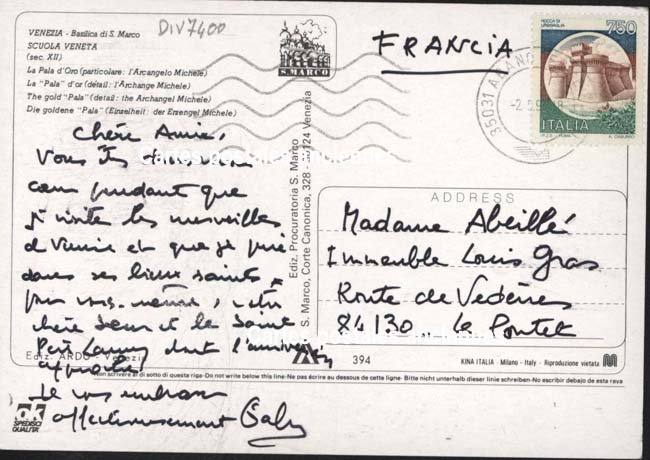 DIV7400
VENEZIA - Basilica di S. Marco
SCUOLA VENETA
(sec. XII)
La Pala d'Oro (particolare: l'Arcangelo Michele)
La "Pala" d'or (détail: l'Archange Michele)
The gold "Pala" (detail: the Archangel Michele)
Die goldene "Pala" (Einzelheit: der Erzengel Michele)
S. MARCO
FRANCIA
ROCCA DI URBISAGLIA
750
ITALIA
35031 ABANO
Chère Amie,
Vous êtes dans mon
cœur pendant que
je visite les merveilles
de Venise et que je prie
dans ses lieux saints
pour vous-même, votre
chère sœur et le Saint
Père dont l'anniver
approche!
Je vous embrasse
affectueusement Gaby
Ediz. Procuratoria S. Marco
S. Marco, Corte Canonica, 328 - 30124 Venezia
ADDRESS
Madame Abeillé
Immeuble Louis Gras
Route de Vedènes
84130 Le Pontet
Ediz. ARDO - Venezia
394
KINA ITALIA - Milano - Italy - Riproduzione vietata
Non scrivere al di sotto di questa riga-Do not write below this line-Ne pas écrire au dessous de cette ligne- Bitte nicht unterhalb dieser linie schreiben-No escribir debajo de esta raya
ok
SPEDISCI
QUALITA'